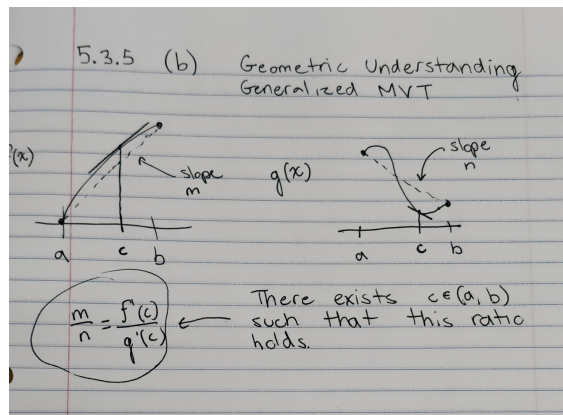 5.3.5 (b) Geometric Understanding
Generalized MVT
f(x)
slope
m
a c b
g(x)
slope
n
a c b
m/n = f'(c)/g'(c)
There exists c ∈ (a, b)
such that this ratio
holds.